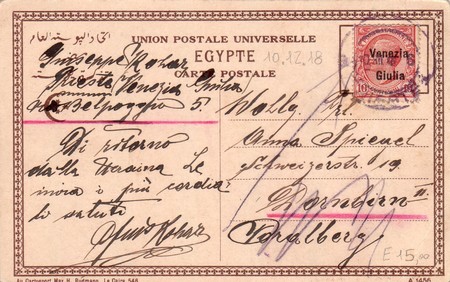 UNION POSTALE UNIVERSELLE
EGYPTE
CARTE POSTALE
10.12.18
Venezia
Giulia
Giuseppe Kohar
Trieste Venezia Giulia
via Belpoggio 5.
Di ritorno
dalla Ucraina Le
invio i più cordia-
li saluti
Wolly. Frl.
Anna Spiegel
Schweizerstr. 19
Dornbirn
Voralberg
E 15,00
Au Cartosport Max H. Rudmann, Le Caire 548
A 1456